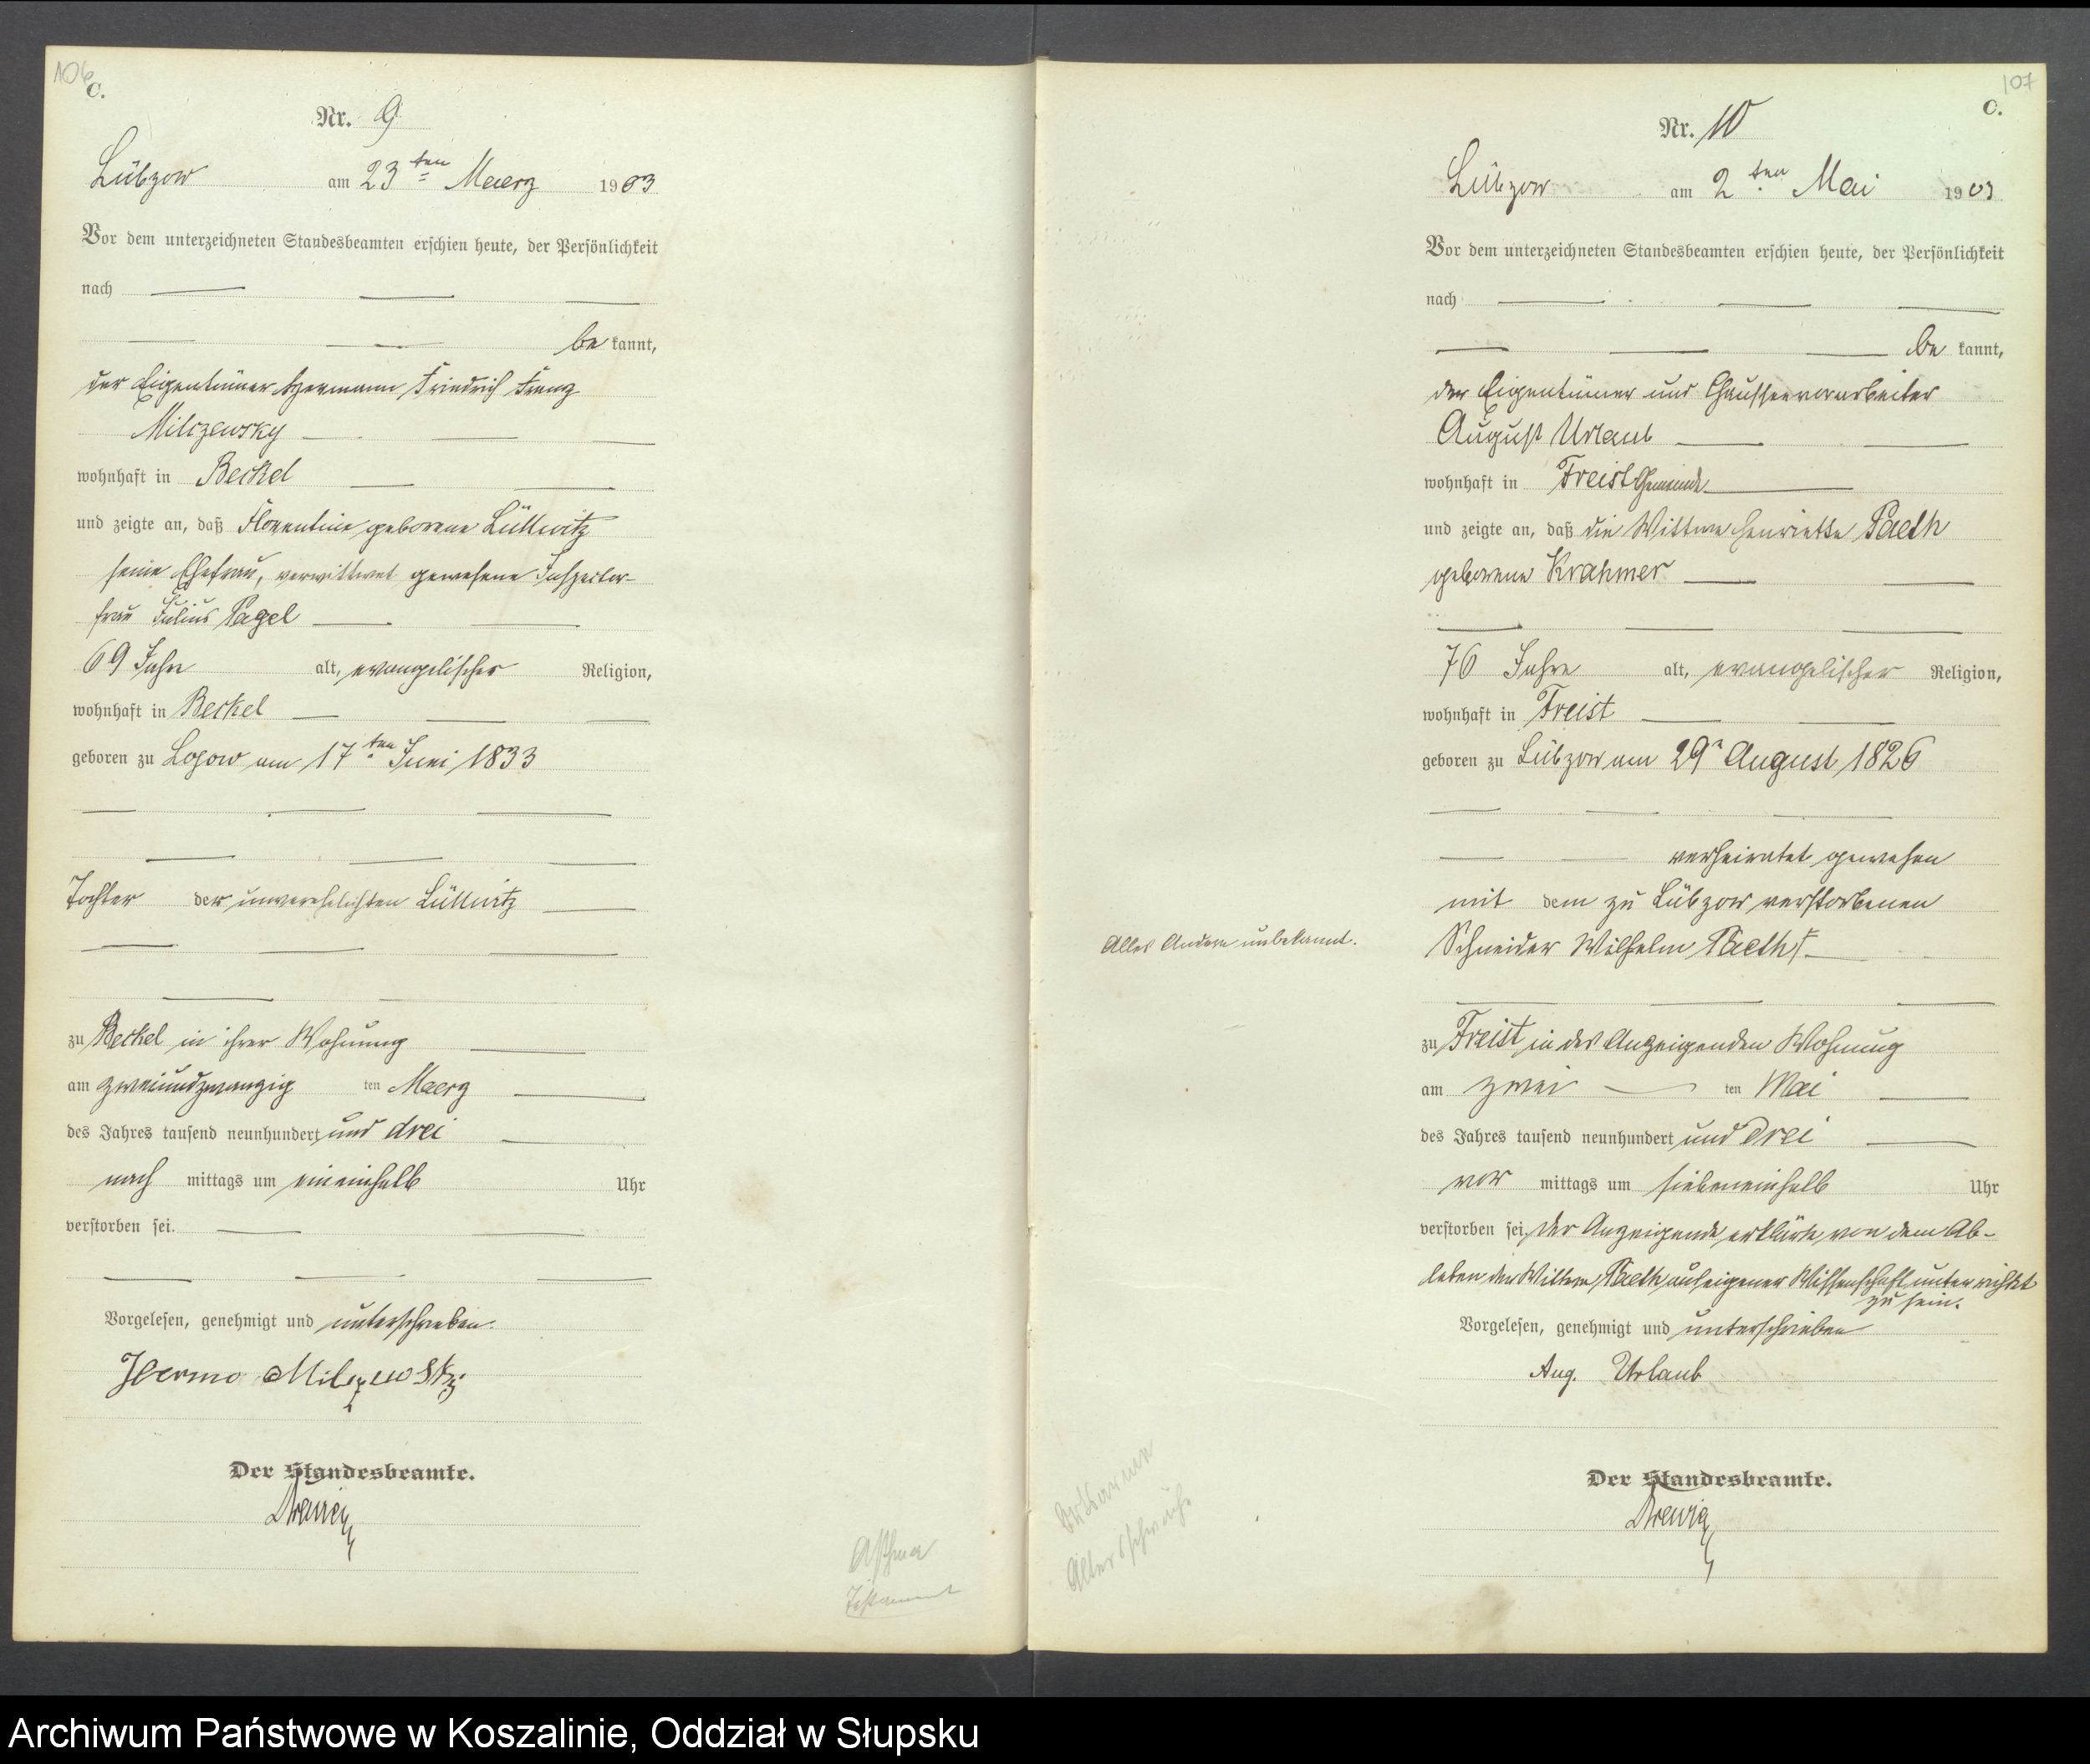 106
C.
Nr. 9
Lübzow am 23ten Maerz 1903
Vor dem unterzeichneten Standesbeamten erschien heute, der Persönlichkeit
nach
be kannt,
der Eigentümer Hermann Friedrich Franz
Milczewsky
wohnhaft in Beckel
und zeigte an, daß Florentine geborene Lüllwitz
seine Ehefrau, verwittwet gewesene Inspector-
frau Julius Pagel
69 Jahre alt, evangelischer Religion,
wohnhaft in Beckel
geboren zu Lojow am 17ten Juni 1833
Tochter der unverehelichten Lüllwitz
zu Beckel in ihrer Wohnung
am zweiundzwanzig ten Maerz
des Jahres tausend neunhundert und drei
nach mittags um eineinhalb Uhr
verstorben sei.
Vorgelesen, genehmigt und unterschrieben.
Herrmo Milczewski
Der Standesbeamte.
Drewig
Asthma
Testament
107
C.
Nr. 10
Lübzow am 2ten Mai 1903
Vor dem unterzeichneten Standesbeamten erschien heute, der Persönlichkeit
nach
be kannt,
der Eigentümer und Chausseevorarbeiter
August Urlaub
wohnhaft in Freist Gemeinde
und zeigte an, daß die Wittwe Henriette Paeth
geborene Krahmer
76 Jahre alt, evangelischer Religion,
wohnhaft in Freist
geboren zu Lübzow am 29n August 1826
verheiratet gewesen
mit dem zu Lübzow verstorbenen
Schneider Wilhelm Paeth
Alles Andere unbekannt.
zu Freist in des Anzeigenden Wohnung
am zwei ten Mai
des Jahres tausend neunhundert und drei
vor mittags um siebeneinhalb Uhr
verstorben sei, der Anzeigende erklärte von dem Ab-
leben der Wittwe Paeth aus eigener Wissenschaft unterrichtet
zu sein.
Vorgelesen, genehmigt und unterschrieben
Aug. Urlaub
Der Standesbeamte.
Drewig
Altersschwäche
Archiwum Państwowe w Koszalinie, Oddział w Słupsku